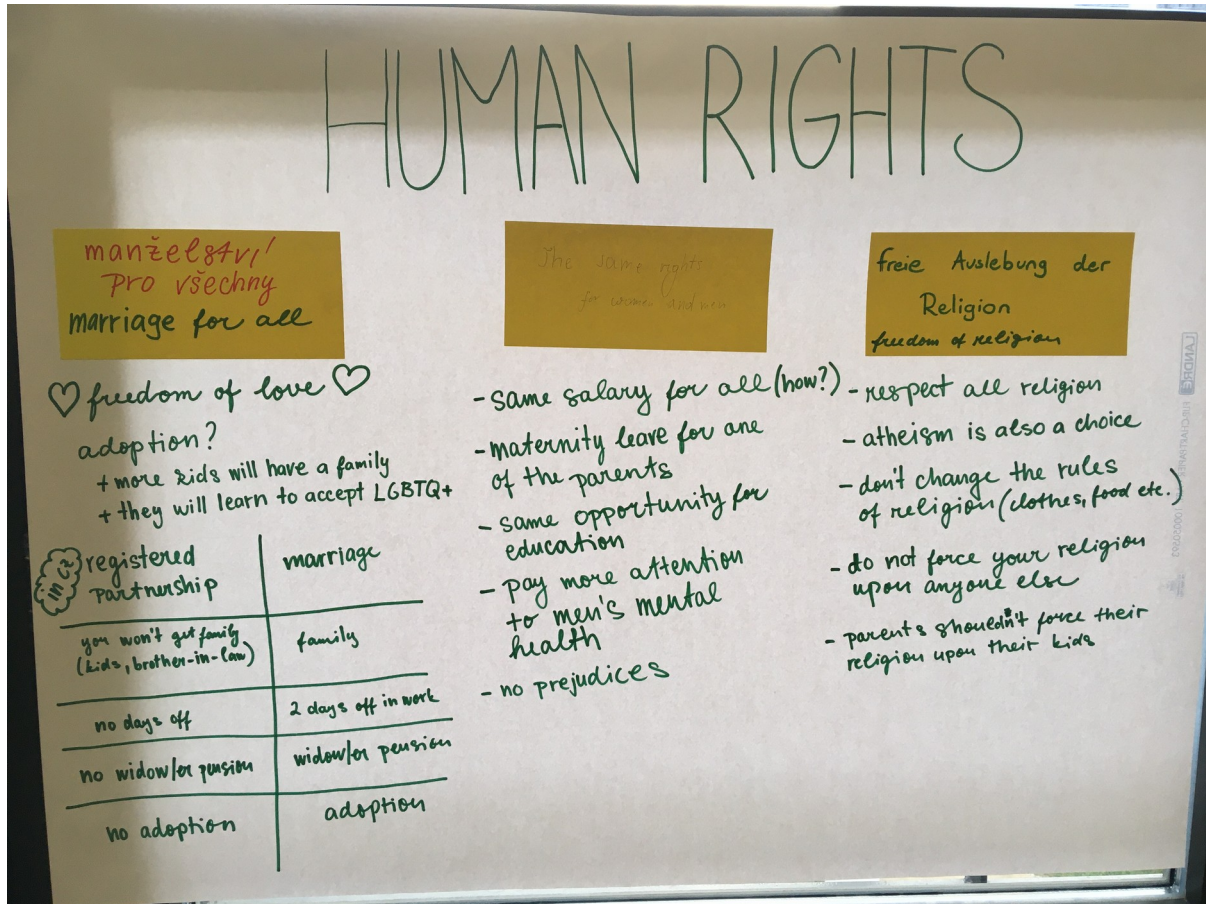 HUMAN RIGHTS
manželství
pro všechny
marriage for all
♡ freedom of love ♡
adoption?
+ more kids will have a family
+ they will learn to accept LGBTQ+
in CZ
registered
partnership
marriage
you won't get family
(kids, brother-in-law)
family
no days off
2 days off in work
no widow/er pension
widow/er pension
no adoption
adoption
The same rights
for women and men
- same salary for all (how?)
- maternity leave for one
of the parents
- same opportunity for
education
- pay more attention
to men's mental
health
- no prejudices
freie Auslebung der
Religion
freedom of religion
- respect all religion
- atheism is also a choice
- don't change the rules
of religion (clothes, food etc.)
- do not force your religion
upon anyone else
- parents shouldn't force their
religion upon their kids
LANDRÉ